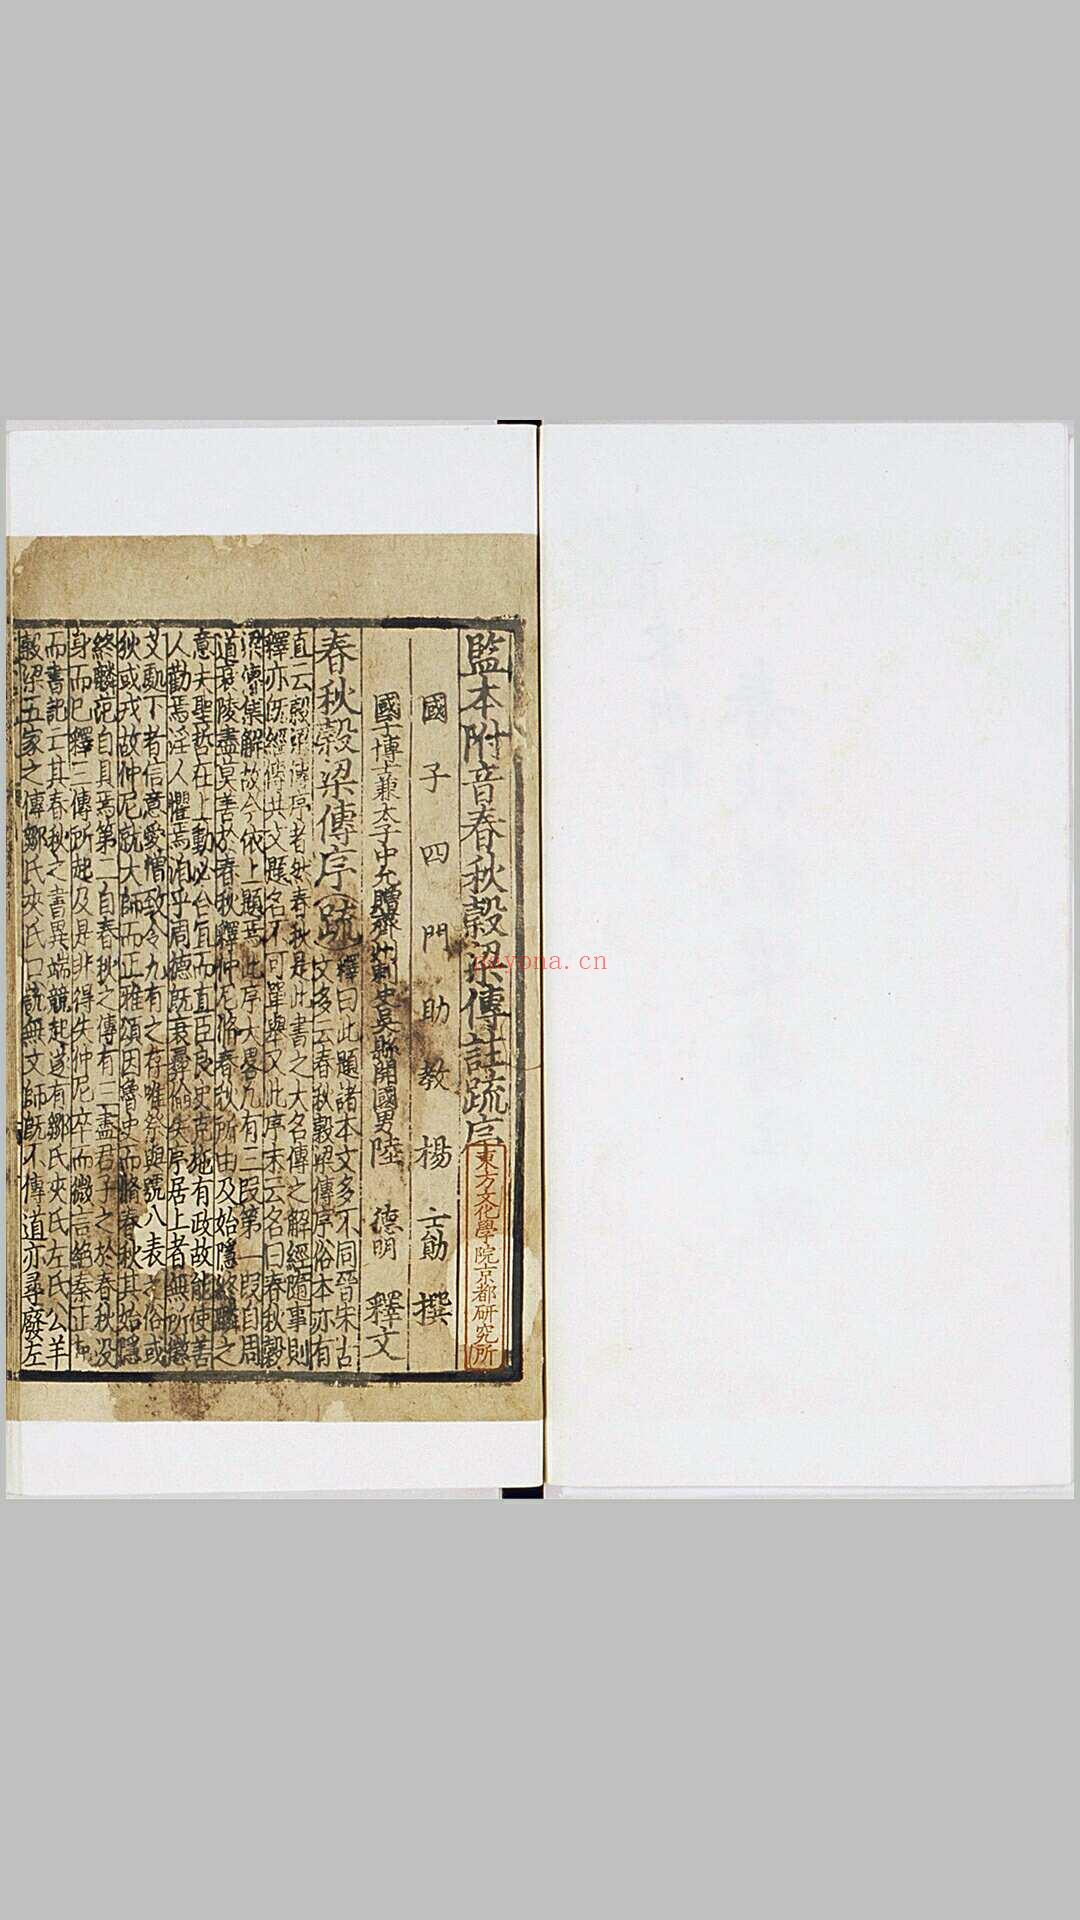 監本附音春秋穀梁傳註疏序
東方文化學院京都研究所
國子四門助教楊士勛撰
國子博士兼太子中允贈齊州刺史吳縣開國男陸德明釋文
春秋穀梁傳序
疏
釋曰此題諸本文多不同晉宋古
文多云春秋穀梁傳序俗本亦有
直云穀梁傳序者然春秋是此書之大名傳之解經隨事則
釋亦既經傳共文題名不可單舉又此序末云名曰春秋穀
梁傳集解故今依上題焉此序大畧凡有三段第一段自周
道衰陵盡莫善於春秋釋仲尼脩春秋所由及始隱終麟之
意夫聖哲在上動必合宜而直臣良史克施有政故能使善
人勸焉淫人懼焉洎乎周德既衰彛倫失序居上者無所懲
艾馭下者信意愛憎致令九有之存唯祭與號八表之俗或
狄或戎故仲尼就大師而正雅頌因魯史而脩春秋其始隱
終麟范自具焉第二自春秋之傳有三盡君子之於春秋没
身而已釋三傳所起及是非得失仲尼卒而微言絶秦正起
而書記亡其春秋之書異端競起遂有鄒氏夾氏左氏公羊
穀梁五家之傳鄒氏夾氏口説無文師既不傳道亦尋廢左
keyona.cn